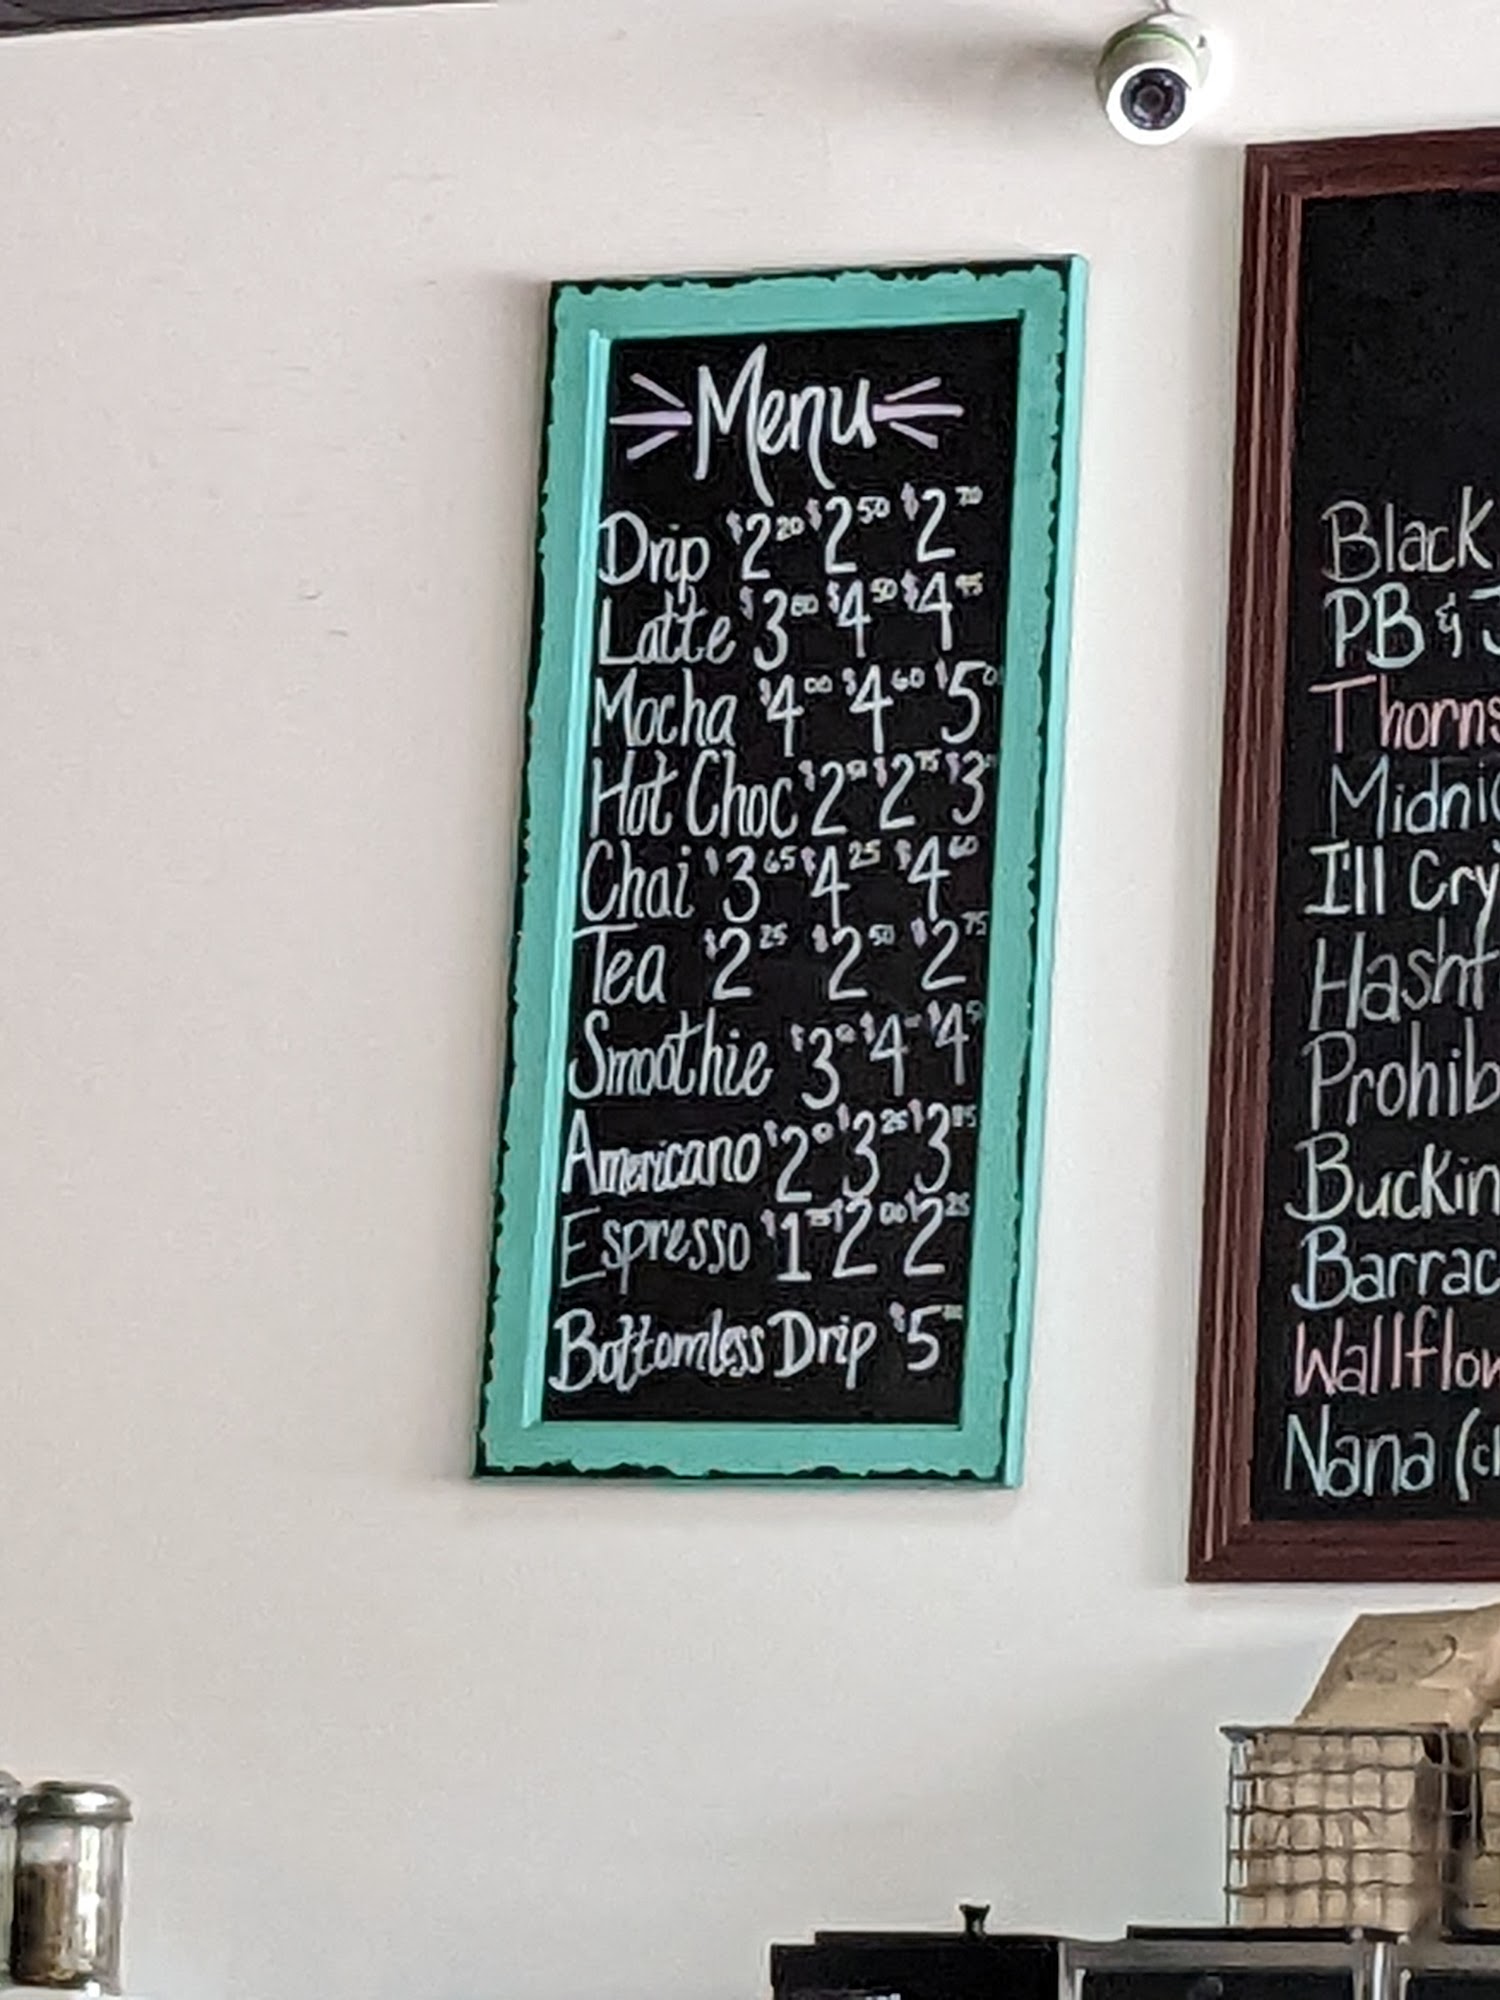 Menu
Drip $2.20 $2.50 $2.70
Latte $3.80 $4.50 $4.95
Mocha $4.00 $4.60 $5
Hot Choc $2.50 $2.75 $3
Chai $3.65 $4.25 $4.60
Tea $2.25 $2.50 $2.75
Smoothie $3 $4 $4
Americano $2 $3.25 $3
Espresso $1.75 $2.00 $2.25
Bottomless Drip $5
Black
PB & J
Thorns
Midni
I'll Cry
Hasht
Prohib
Buckin
Barrac
Wallflow
Nana (ch